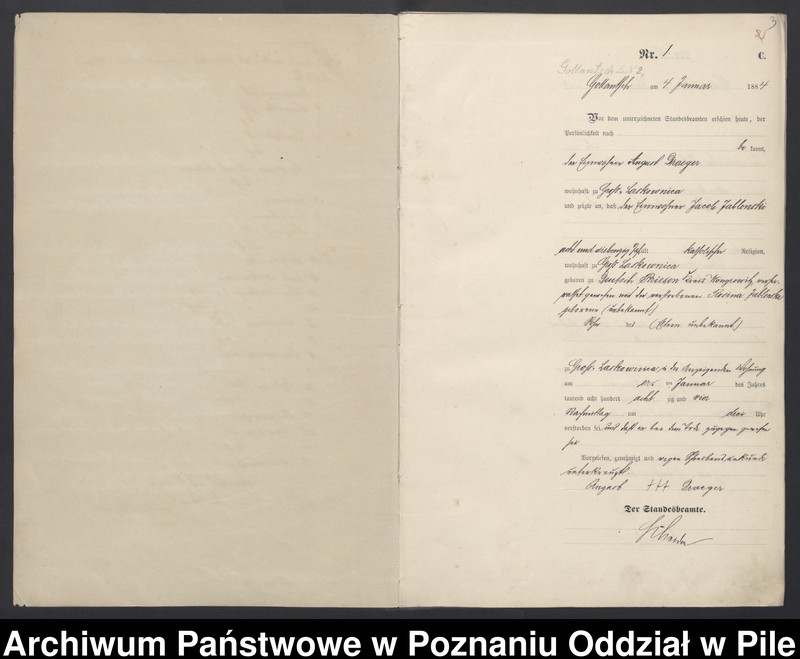 3
Nr. 1. C.
Gollantsch am 4 Januar 1884
Vor dem unterzeichneten Standesbeamten erschien heute, der
Persönlichkeit nach
be kannt,
der Einwohner August Draeger
wohnhaft zu Groß Laskownica
und zeigte an, daß der Einwohner Jacob Jablonski
acht und siebenzig Jahr alt katholischer Religion,
wohnhaft zu Groß Laskownica
geboren zu Deutsch Kreis Wongrowitz verhei-
rathet gewesen mit der verstorbenen Jablonska
geborene (unbekannt)
Sohn des (Eltern unbekannt)
zu Groß Laskownica in des Anzeigenden Wohnung
am ten Januar des Jahres
tausend acht hundert acht zig und vier
Nachmittag um drei Uhr
verstorben sei, und daß er bei dem Tode zugegen gewesen
sei
Vorgelesen, genehmigt und wegen Schreibensunkunde
unterkreuzt.
August +++ Draeger
Der Standesbeamte.
Archiwum Państwowe w Poznaniu Oddział w Pile